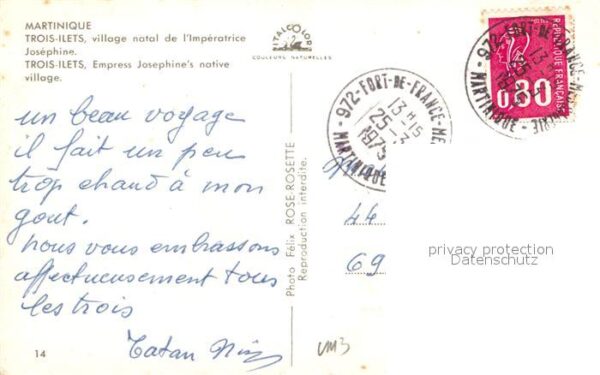 MARTINIQUE
TROIS-ILETS, village natal de l'Impératrice
Joséphine.
TROIS-ILETS, Empress Josephine's native
village.
un beau voyage
il fait un peu
trop chaud à mon
gout.
nous vous embrassons
affectueusement tous
les trois
Tatan
14
ITALCOLOR
COULEURS NATURELLES
Photo Félix ROSE-ROSETTE
Reproduction interdite.
972-FORT-DE-FRANCE-ME
13 H 15
25-3
1975
MARTINIQUE
0.80
REPUBLIQUE FRANÇAISE
972-FORT-DE-FRANCE-ME
MARTINIQUE
44
69
privacy protection
Datenschutz
VM3